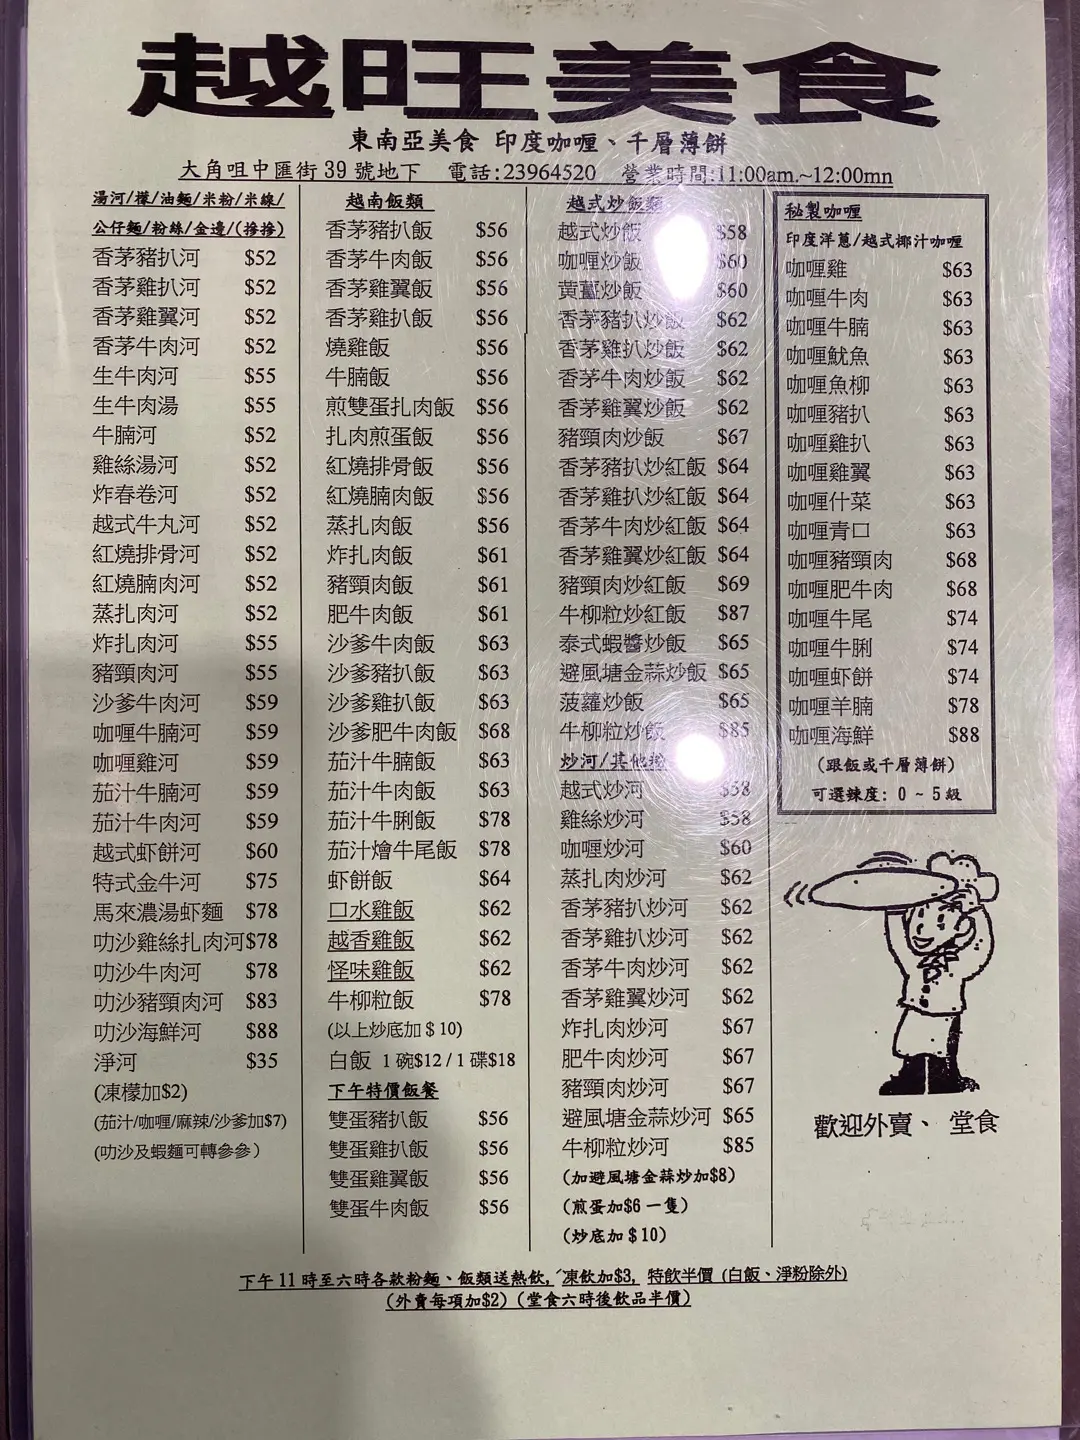 越旺美食
東南亞美食 印度咖喱、千層薄餅
大角咀中匯街 39 號地下 電話:23964520 營業時間:11:00am.~12:00mn
湯河/檬/油麵/米粉/米線/
公仔麵/粉絲/金邊/(摻摻)
香茅豬扒河 $52
香茅雞扒河 $52
香茅雞翼河 $52
香茅牛肉河 $52
生牛肉河 $55
生牛肉湯 $55
牛腩河 $52
雞絲湯河 $52
炸春卷河 $52
越式牛丸河 $52
紅燒排骨河 $52
紅燒腩肉河 $52
蒸扎肉河 $52
炸扎肉河 $55
豬頸肉河 $55
沙爹牛肉河 $59
咖喱牛腩河 $59
咖喱雞河 $59
茄汁牛腩河 $59
茄汁牛肉河 $59
越式虾餅河 $60
特式金牛河 $75
馬來濃湯虾麵 $78
叻沙雞絲扎肉河$78
叻沙牛肉河 $78
叻沙豬頸肉河 $83
叻沙海鮮河 $88
淨河 $35
(凍檬加$2)
(茄汁/咖喱/麻辣/沙爹加$7)
(叻沙及蝦麵可轉參參)
越南飯類
香茅豬扒飯 $56
香茅牛肉飯 $56
香茅雞翼飯 $56
香茅雞扒飯 $56
燒雞飯 $56
牛腩飯 $56
煎雙蛋扎肉飯 $56
扎肉煎蛋飯 $56
紅燒排骨飯 $56
紅燒腩肉飯 $56
蒸扎肉飯 $56
炸扎肉飯 $61
豬頸肉飯 $61
肥牛肉飯 $61
沙爹牛肉飯 $63
沙爹豬扒飯 $63
沙爹雞扒飯 $63
沙爹肥牛肉飯 $68
茄汁牛腩飯 $63
茄汁牛肉飯 $63
茄汁牛脷飯 $78
茄汁燴牛尾飯 $78
虾餅飯 $64
口水雞飯 $62
越香雞飯 $62
怪味雞飯 $62
牛柳粒飯 $78
(以上炒底加＄10)
白飯 1 碗$12 / 1 碟$18
下午特價飯餐
雙蛋豬扒飯 $56
雙蛋雞扒飯 $56
雙蛋雞翼飯 $56
雙蛋牛肉飯 $56
越式炒飯類
越式炒飯 $58
咖喱炒飯 $60
黄薑炒飯 $60
香茅豬扒炒飯 $62
香茅雞扒炒飯 $62
香茅牛肉炒飯 $62
香茅雞翼炒飯 $62
豬頸肉炒飯 $67
香茅豬扒炒紅飯 $64
香茅雞扒炒紅飯 $64
香茅牛肉炒紅飯 $64
香茅雞翼炒紅飯 $64
豬頸肉炒紅飯 $69
牛柳粒炒紅飯 $87
泰式蝦醬炒飯 $65
避風塘金蒜炒飯 $65
菠蘿炒飯 $65
牛柳粒炒飯 $85
炒河/其他
越式炒河 $58
雞絲炒河 $58
咖喱炒河 $60
蒸扎肉炒河 $62
香茅豬扒炒河 $62
香茅雞扒炒河 $62
香茅牛肉炒河 $62
香茅雞翼炒河 $62
炸扎肉炒河 $67
肥牛肉炒河 $67
豬頸肉炒河 $67
避風塘金蒜炒河 $65
牛柳粒炒河 $85
(加避風塘金蒜炒加$8)
(煎蛋加$6 一隻)
(炒底加＄10)
秘製咖喱
印度洋蔥/越式椰汁咖喱
咖喱雞 $63
咖喱牛肉 $63
咖喱牛腩 $63
咖喱魷魚 $63
咖喱魚柳 $63
咖喱豬扒 $63
咖喱雞扒 $63
咖喱雞翼 $63
咖喱什菜 $63
咖喱青口 $63
咖喱豬頸肉 $68
咖喱肥牛肉 $68
咖喱牛尾 $74
咖喱牛脷 $74
咖喱虾餅 $74
咖喱羊腩 $78
咖喱海鮮 $88
(跟飯或千層薄餅)
可選辣度: 0 ~ 5 級
歡迎外賣、 堂食
下午 11 時至六時各款粉麵、飯類送熱飲, 凍飲加$3, 特飲半價 (白飯、淨粉除外)
(外賣每項加$2) (堂食六時後飲品半價)